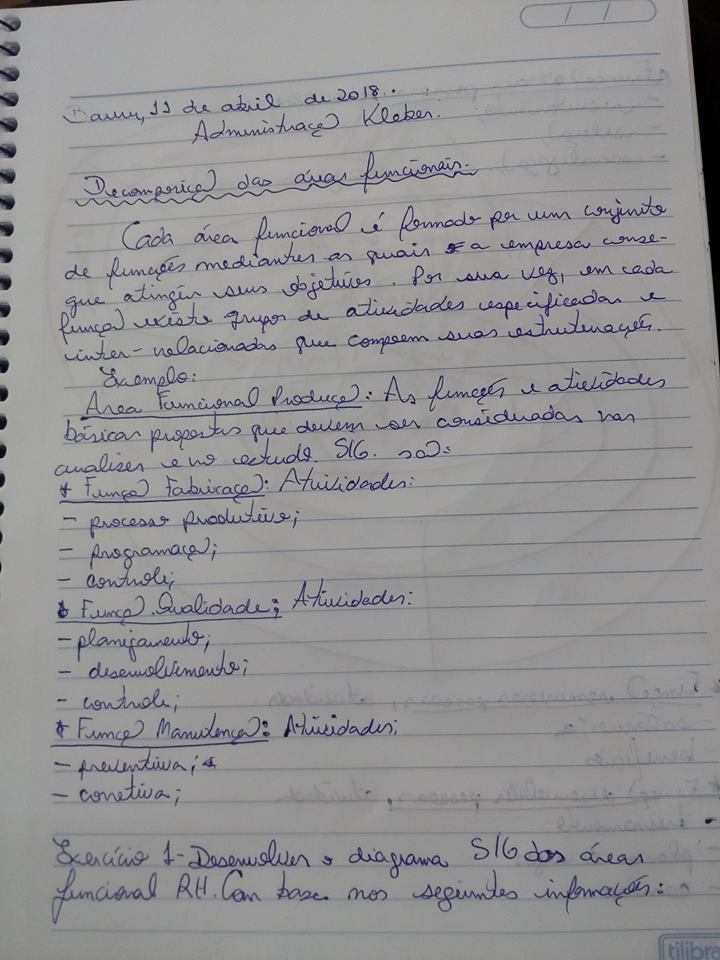 / /
Bauru, 11 de abril de 2018.
Administração Kleber.
Decomposição das áreas funcionais.
Cada área funcional é formado por um conjunto
de funções mediantes as quais a empresa conse-
gue atingir seus objetivos. Por sua vez, em cada
função existe grupos de atividades especificadas e
inter-relacionadas que compoem suas estruturações.
Exemplo:
Area Funcional Produção: As funções e atividades
básicas propostas que devem ser consideradas nas
analises e no estudo SIG. são:
* Função Fabricação: Atividades:
- processo produtivo;
- programação;
- controle;
* Função Qualidade; Atividades:
- planejamento;
- desenvolvimento;
- controle;
* Função Manutenção: Atividades;
- preventiva;
- corretiva;
Exercício 1- Desenvolver o diagrama SIG das áreas
funcional RH. Com base nos seguintes informações:
tilibra